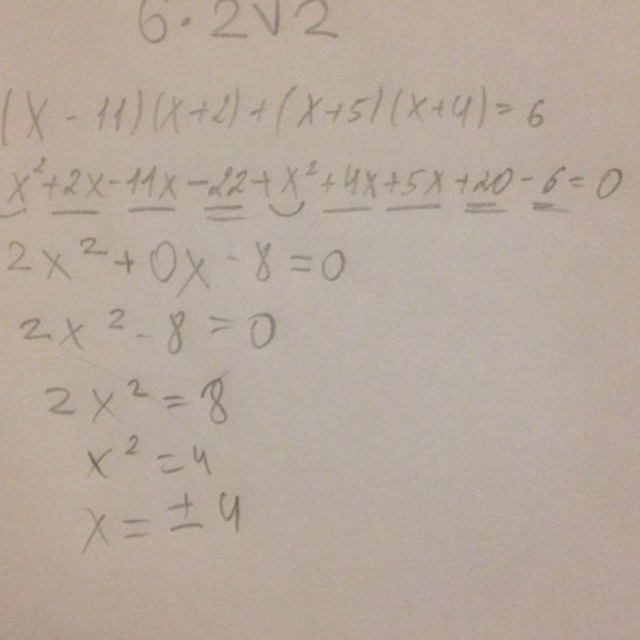 6·2√2
(x-11)(x+2)+(x+5)(x+4)=6
x²+2x-11x-22+x²+4x+5x+20-6=0
2x²+0x-8=0
2x²-8=0
2x²=8
x²=4
x=±4